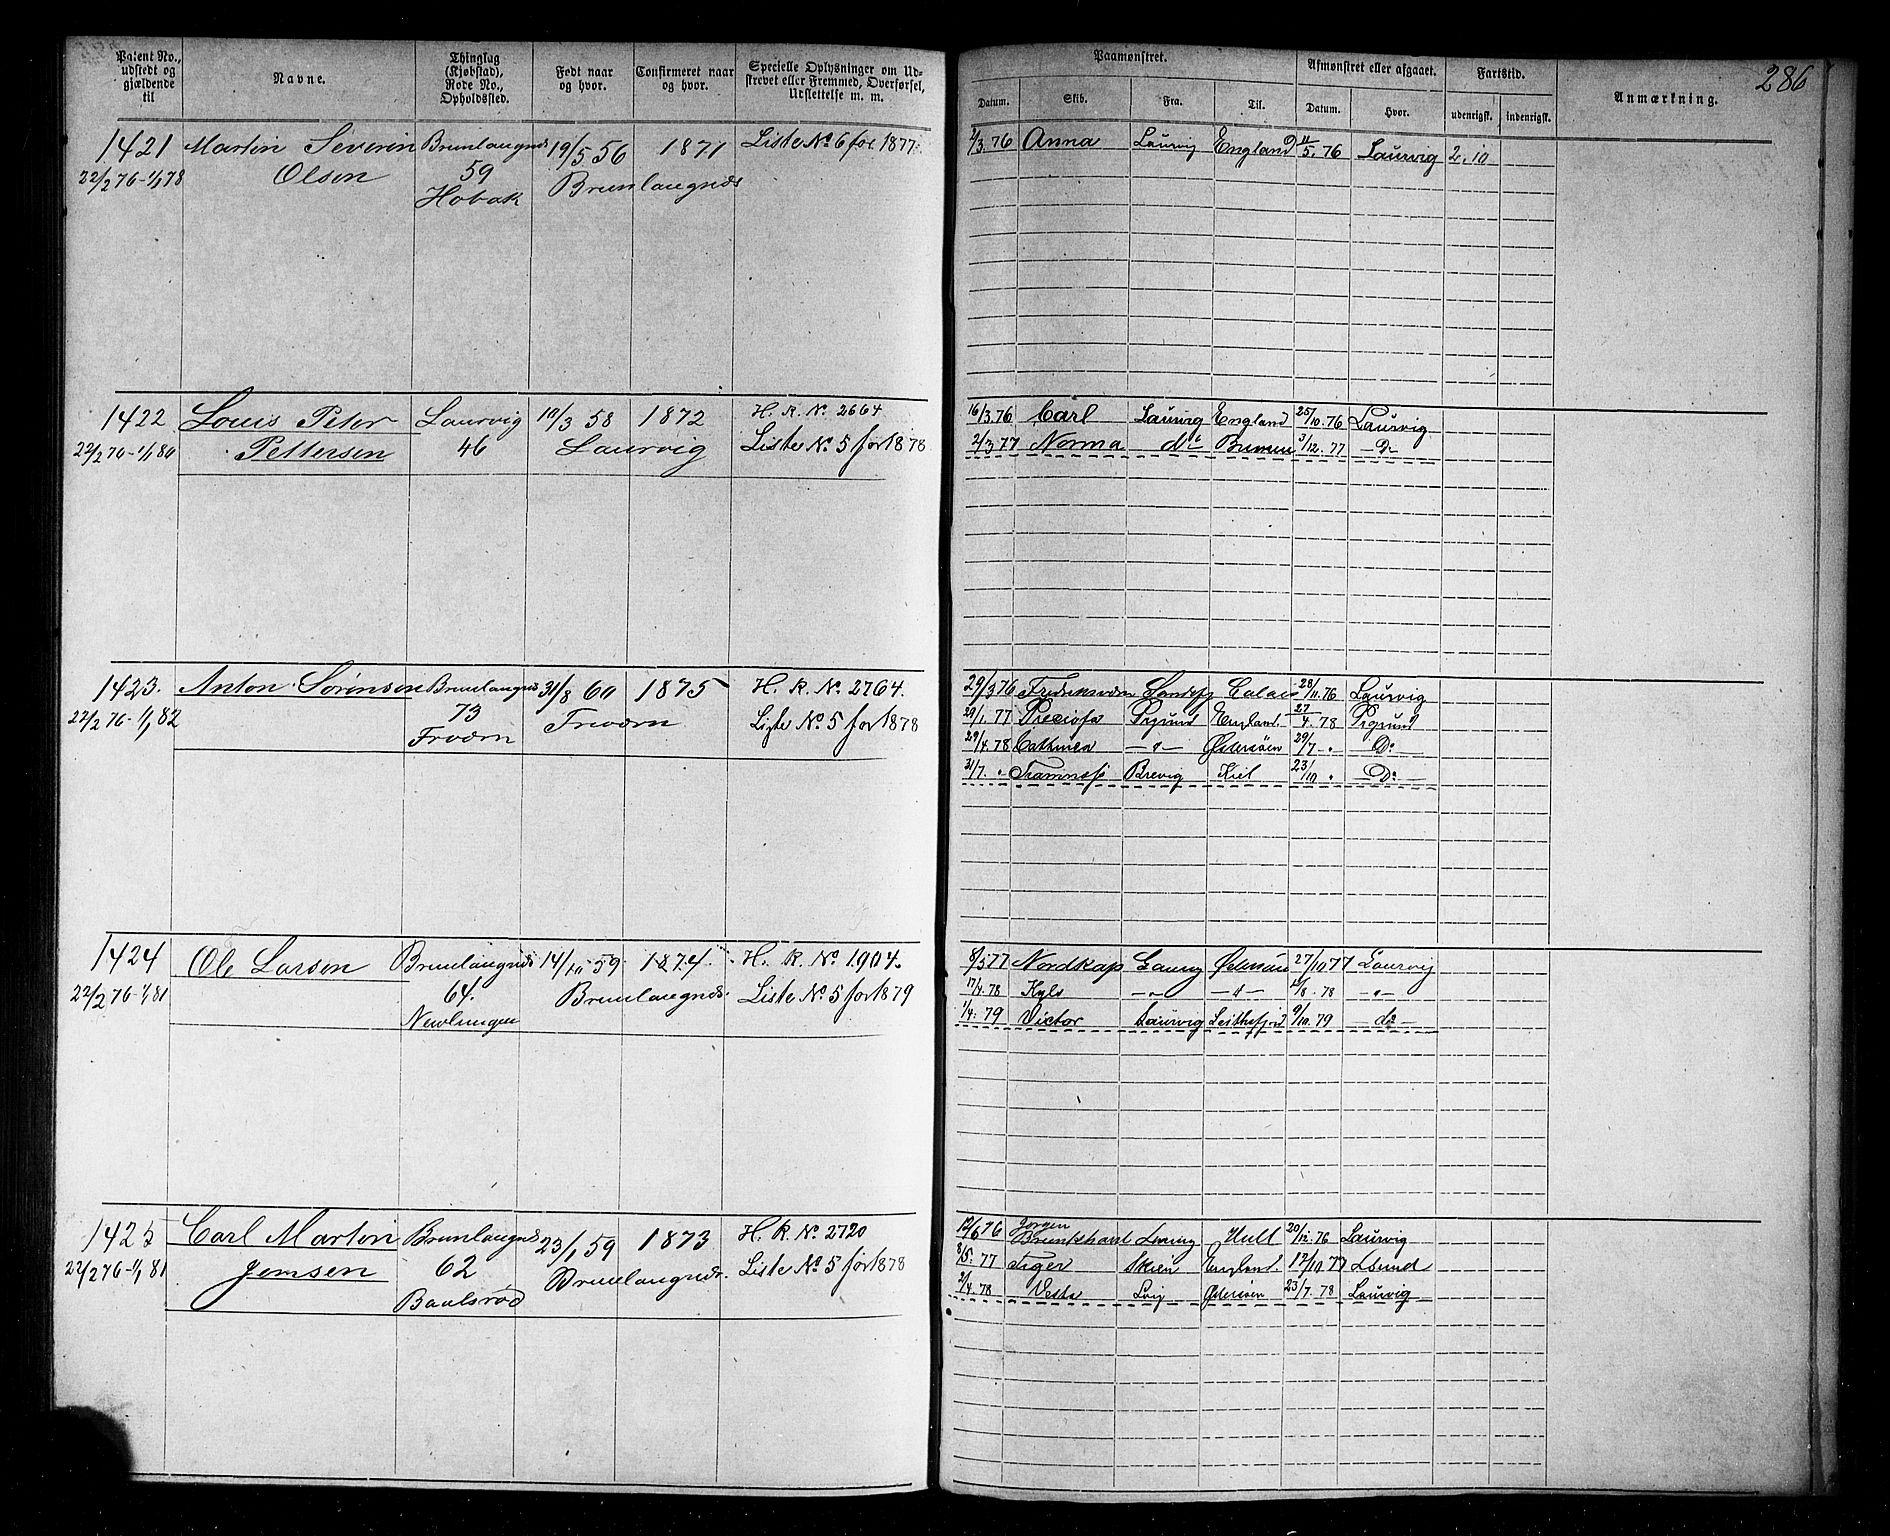 286
Patent No., udstedt og gjældende til
Navne.
Thinglag (Kjøbstad), Rode No., Opholdssted.
Født naar og hvor.
Confirmeret naar og hvor.
Specielle Oplysninger om Udskrevet eller Fremmed, Overførsel, Udslettelse m. m.
Paamønstret.
Afmønstret eller afgaaet.
Fartstid.
Anmærkning.
Datum. Skib. Fra. Til. Datum. Hvor. udenrigsk. indenrigsk.
1421 Martin Severin Brunlangnds 19/5 56 1871 Liste No 6 for 1877.
22/2 76-1/1 78 Olsen 59 Brunlangnds
Hobak
2/3. 76 Anna Laurvig England 11/5. 76 Laurvig 2.10
1422 Louis Peter Laurvig 19/3 58 1872 H. R. No 2664
22/2 76-1/1 80 Pettersen 46 Laurvig Liste No 5 for 1878
16/3.76 Carl Laurvig England 25/10.76 Laurvig
2/3 77 Norma do Bremen 3/12. 77 - Do -
1423. Anton Sørensen Brunlangnds 31/8 60 1875 H. R. No 2764.
22/2 76-1/1 82 73 Frværn Liste No 5 for 1878
Frværn
29/3 76 Fredriksværn Sandefj Calais 28/11.76 Laurvig
29/1. 77 Preciosa Prgrund England. 27/4. 78 Prgrund
29/4.78 Cathinca - " - Østersøen 29/7 - " - Do -
31/7. " Framnæs Brevig Kiel 23/10 " - Do -
1424 Ole Larsen Brunlangnds 14/10 59 1874. H. R. No 1904.
22/2 76-1/1 81 64. Brunlangnds. Liste No 5 for 1879
Nevlungen
8/5 77 Nordkap Laurvg Østersøen 27/10 77 Laurvig
17/4.78 - " - - " - /8. 78 - " -
1/4. 79 Victor Laurvig 9/10. 79 - do -
1425 Carl Martin Brunlangnds 23/1 59 1873 H. R. No 2720
22/2 76-1/1 81 Jensen 62 Brunlangnds. Liste No 5 for 1878
Baulsrød
12/6 76 Jørgen Hull 20/12.76 Laurvig
8/5. 77 Tiger Skien England. 17/10 77
2/4. 78 Vesta Lvig Østersøen 23/7. 78 Laurvig